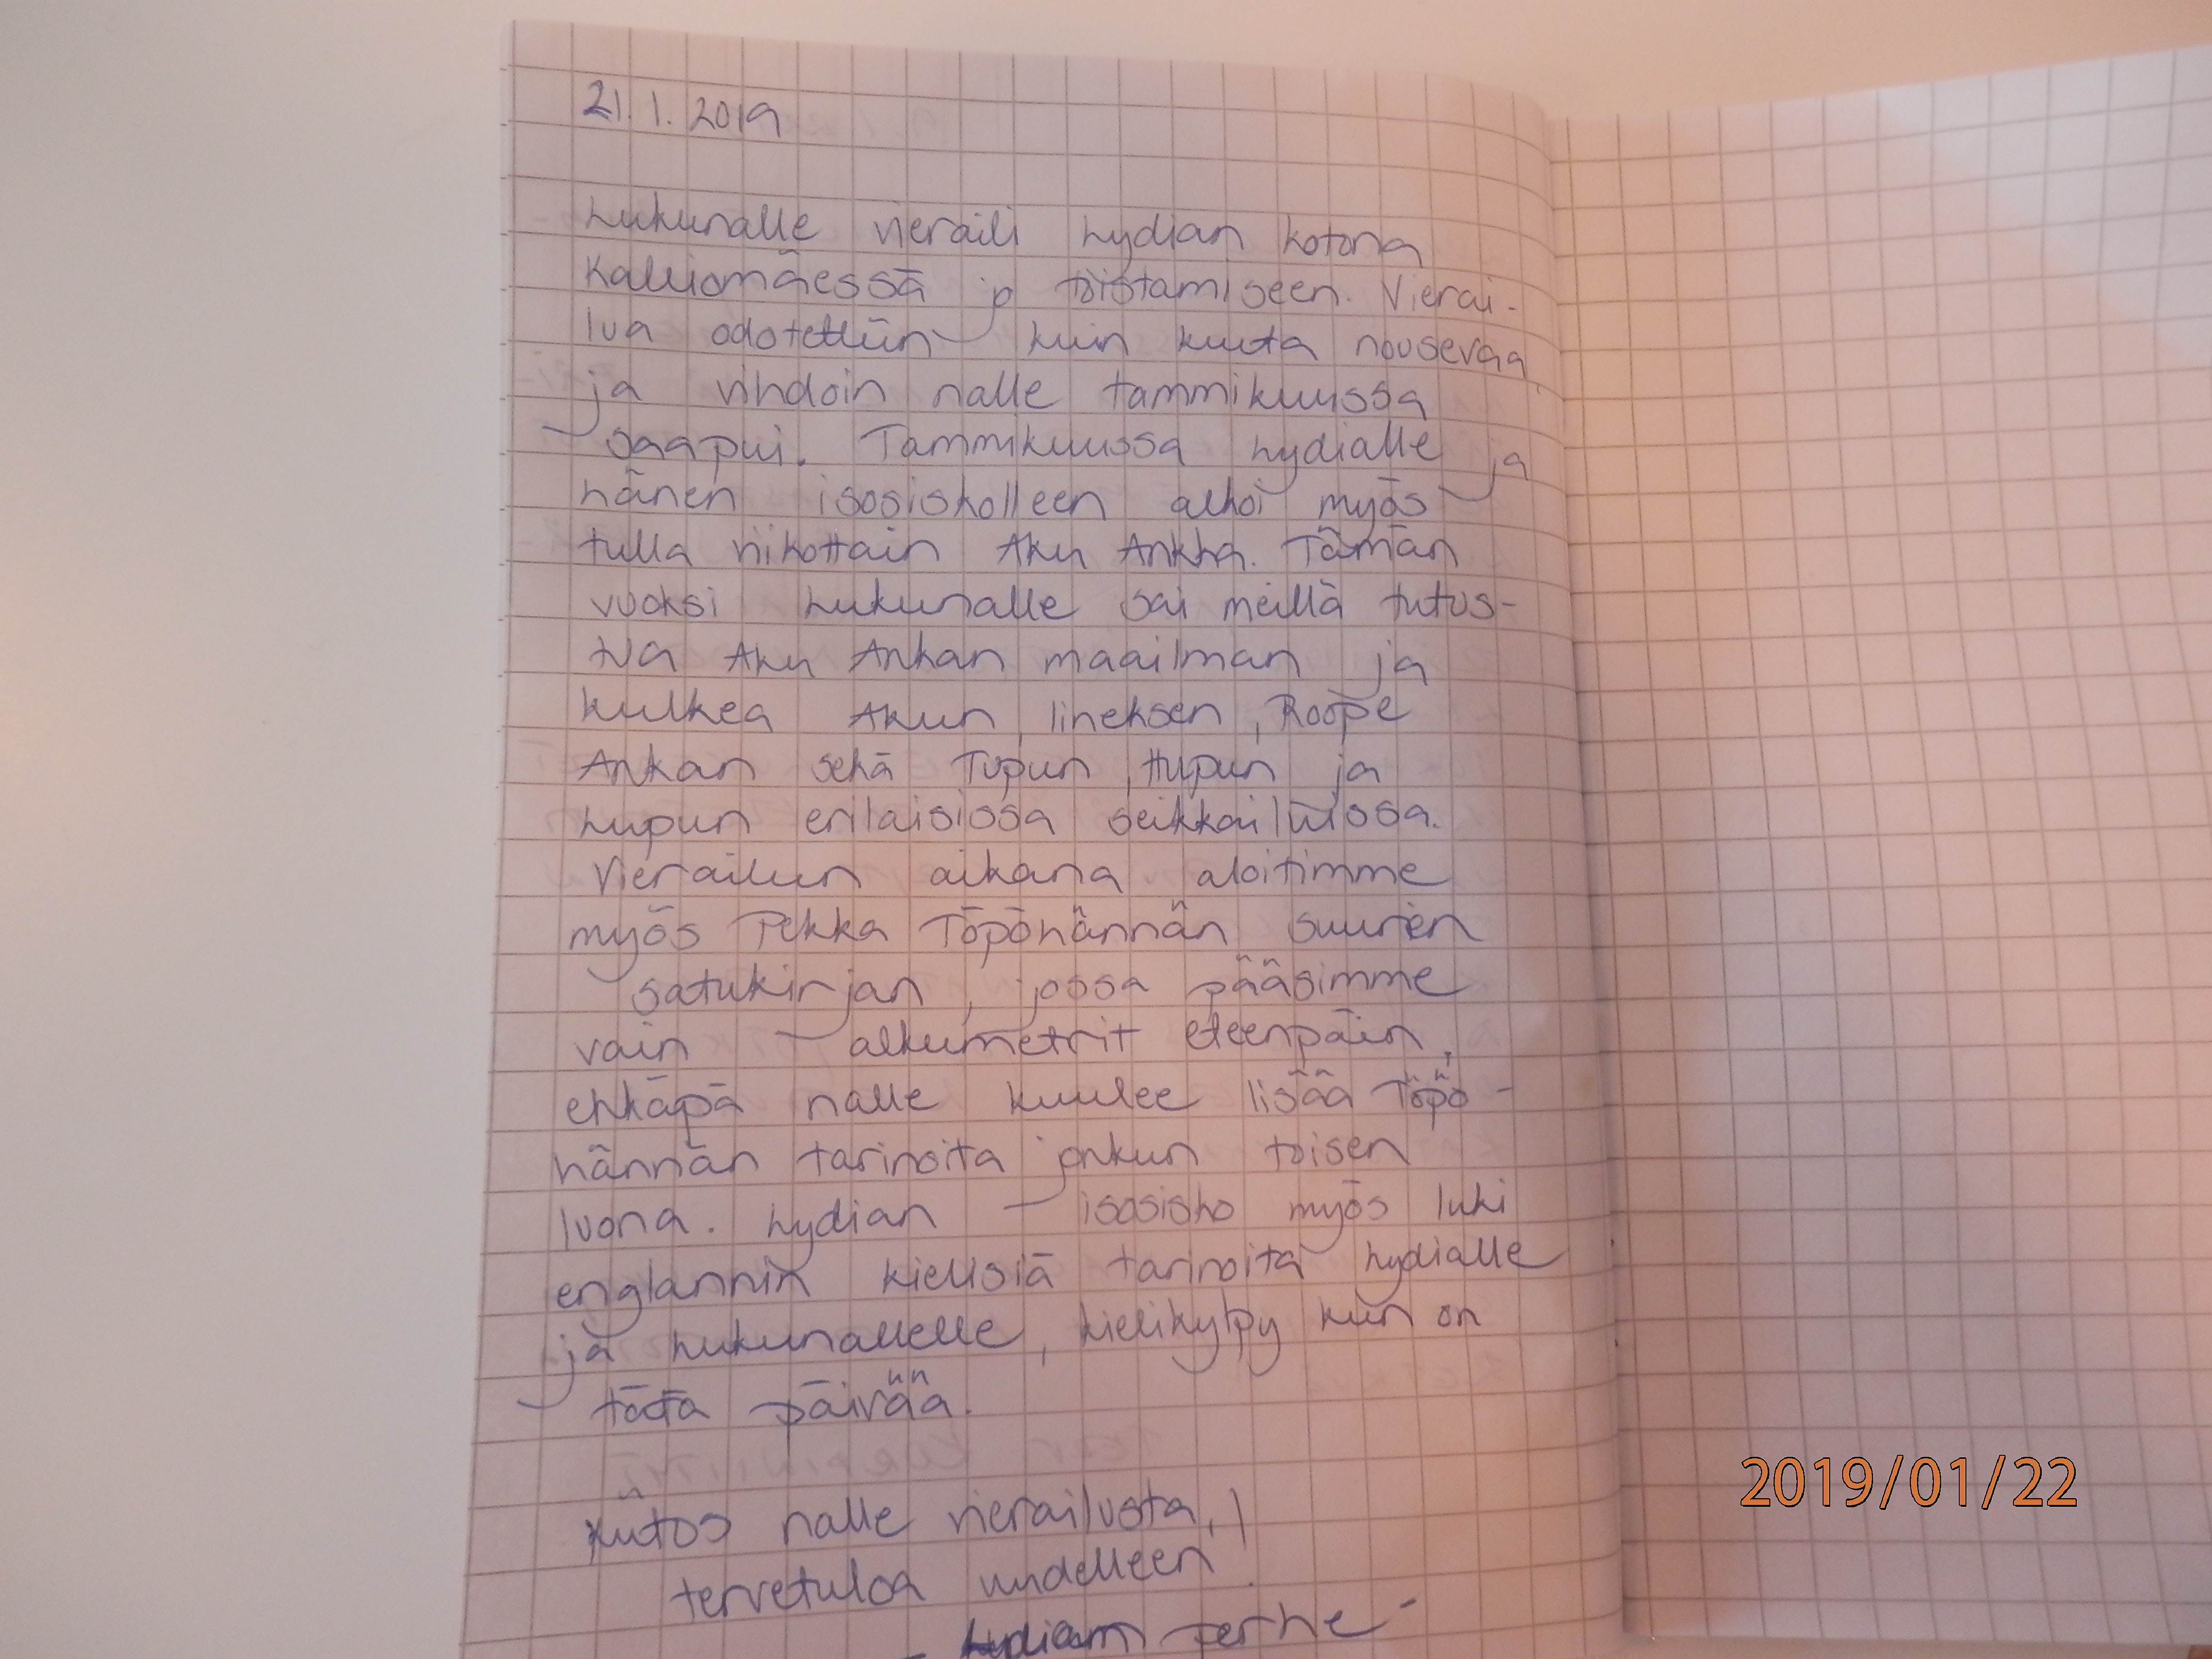 21.1.2019
Lukunalle vieraili Lydian kotona
Kalliomäessä jo toistamiseen. Vierai-
lua odotettiin kuin kuuta nousevaa,
ja vihdoin nalle tammikuussa
saapui. Tammikuussa Lydialle ja
hänen isosiskolleen alkoi myös
tulla viikottain Aku Ankka. Tämän
vuoksi Lukunalle sai meillä tutus-
tua Aku Ankan maailman ja
kulkea Akun, Iineksen, Roope
Ankan sekä Tupun, Hupun ja
Lupun erilaisissa seikkailuissa.
Vierailun aikana aloitimme
myös Pekka Töpöhännän suuren
satukirjan, jossa pääsimme
vain alkumetrit eteenpäin,
ehkäpä nalle kuulee lisää Töpö-
hännän tarinoita jonkun toisen
luona. Lydian isosisko myös luki
englannin kielisiä tarinoita Lydialle
ja Lukunallelle, kielikylpy kun on
tätä päivää.
Kiitos nalle vierailusta,
tervetuloa uudelleen!
- Lydian perhe -
2019/01/22